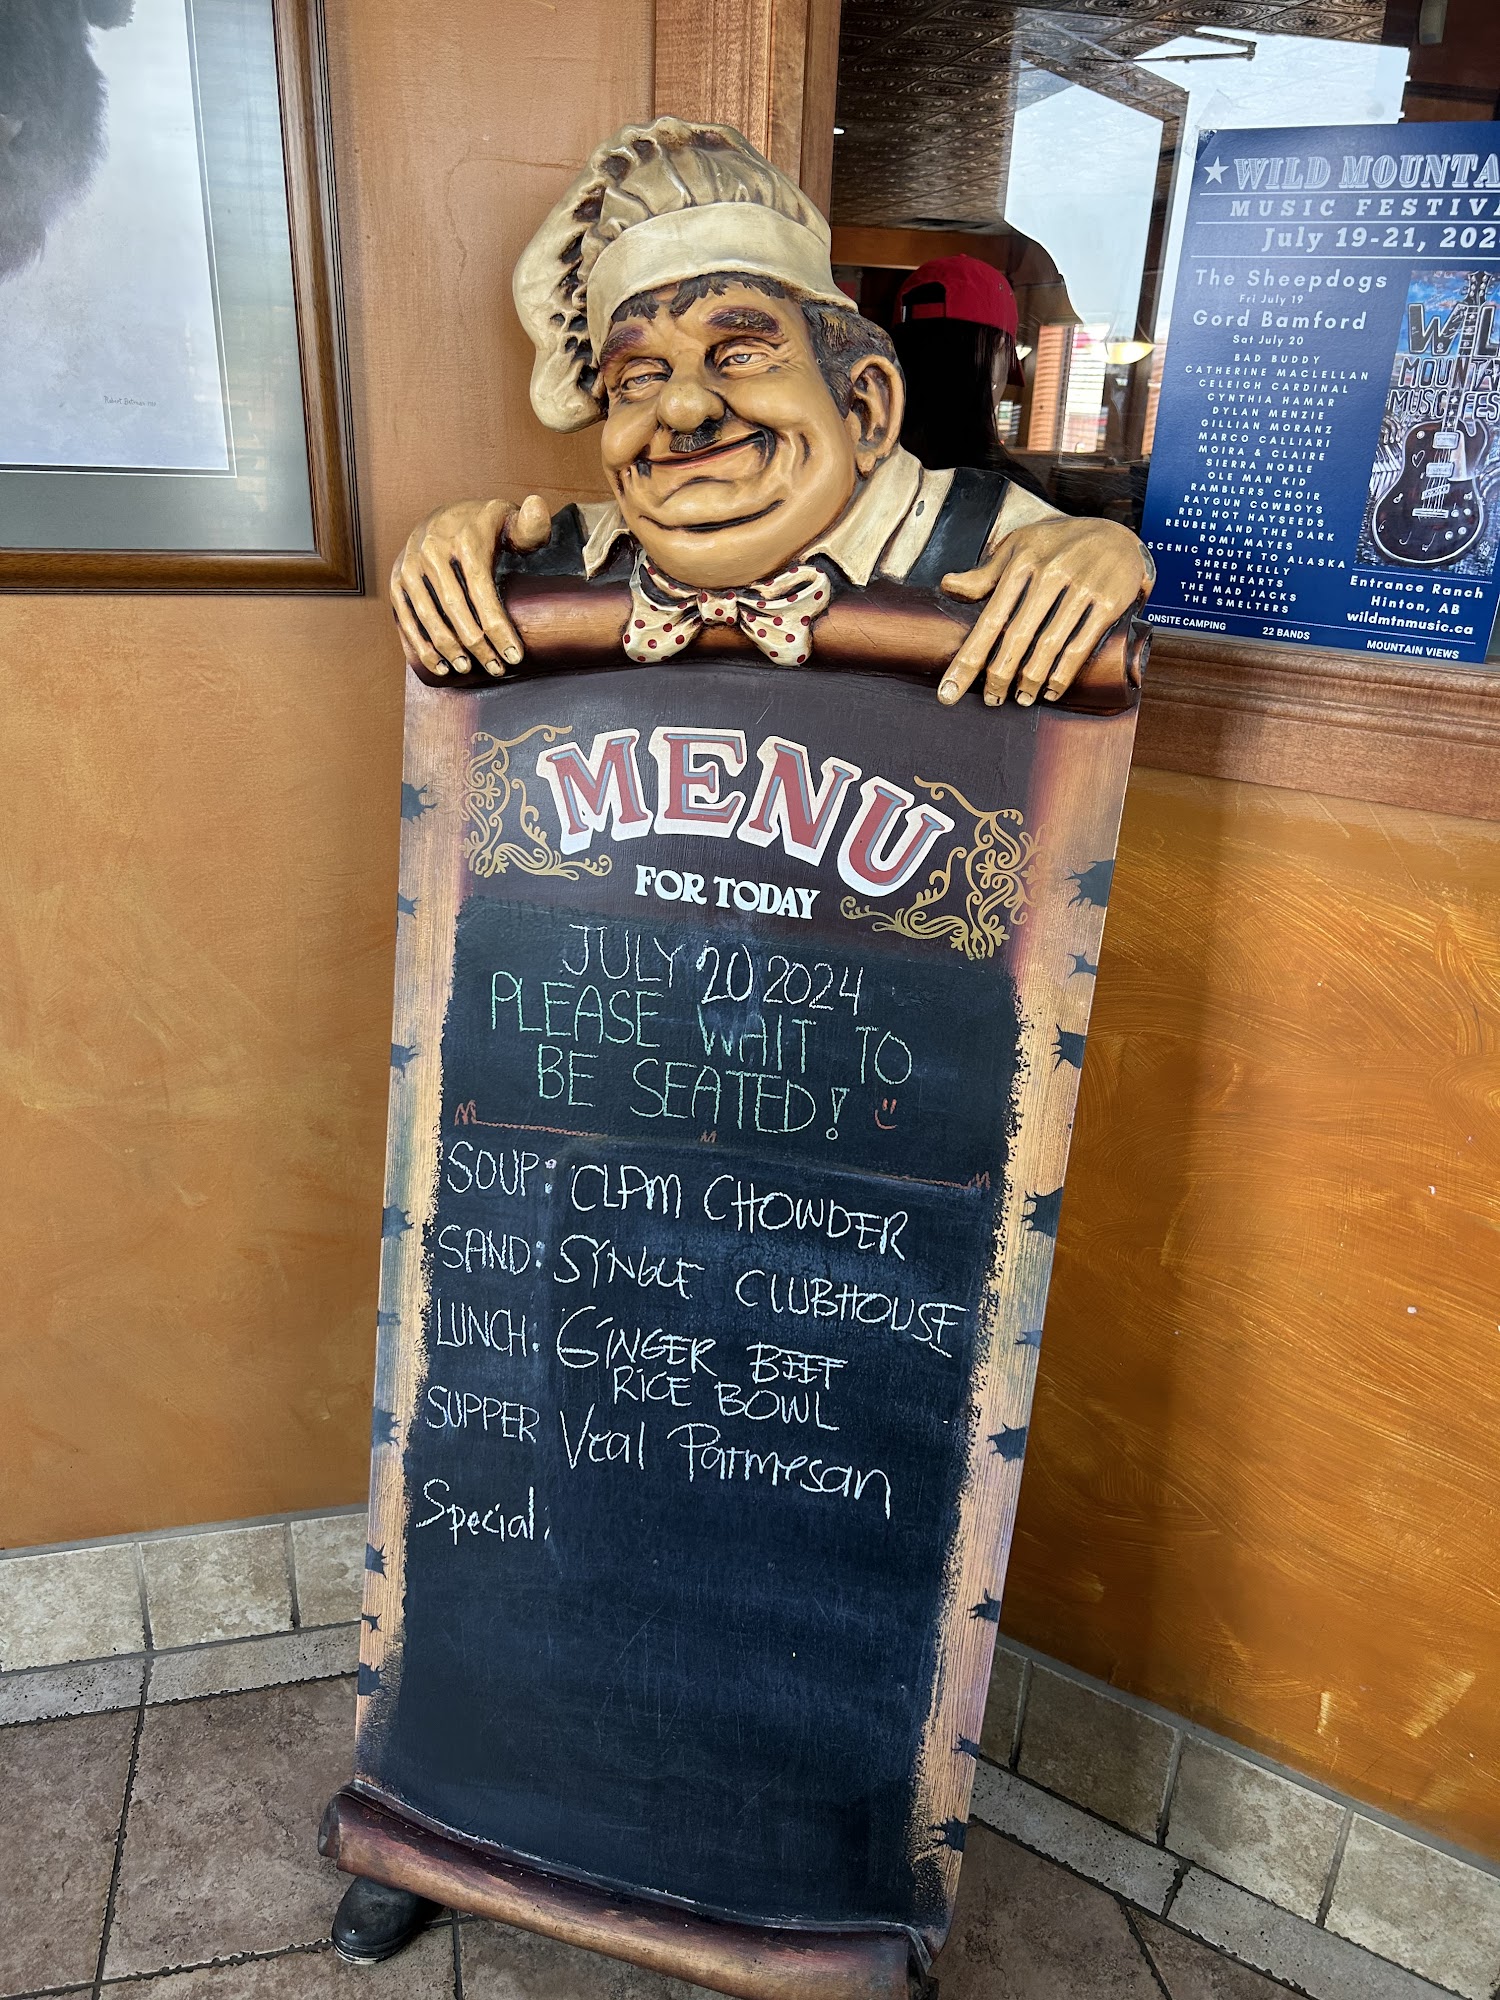 MENU
FOR TODAY
JULY 20 2024
PLEASE WAIT TO
BE SEATED!
SOUP: CLAM CHOWDER
SAND: SYNGLE CLUBHOUSE
LUNCH: GINGER BEEF
RICE BOWL
SUPPER Veal Parmesan
Special:
WILD MOUNTA
MUSIC FESTIVA
July 19-21, 202
The Sheepdogs
Fri July 19
Gord Bamford
Sat July 20
BAD BUDDY
CATHERINE MACLELLAN
CELEIGH CARDINAL
CYNTHIA HAMAR
DYLAN MENZIE
GILLIAN MORANZ
MARCO CALLIARI
MOIRA & CLAIRE
SIERRA NOBLE
OLE MAN KID
RAMBLERS CHOIR
RAYGUN COWBOYS
RED HOT HAYSEEDS
REUBEN AND THE DARK
ROMI MAYES
SCENIC ROUTE TO ALASKA
SHRED KELLY
THE HEARTS
THE MAD JACKS
THE SMELTERS
WIL
MOUNTA
MUSIC FES
Entrance Ranch
Hinton, AB
wildmtnmusic.ca
ONSITE CAMPING
22 BANDS
MOUNTAIN VIEWS